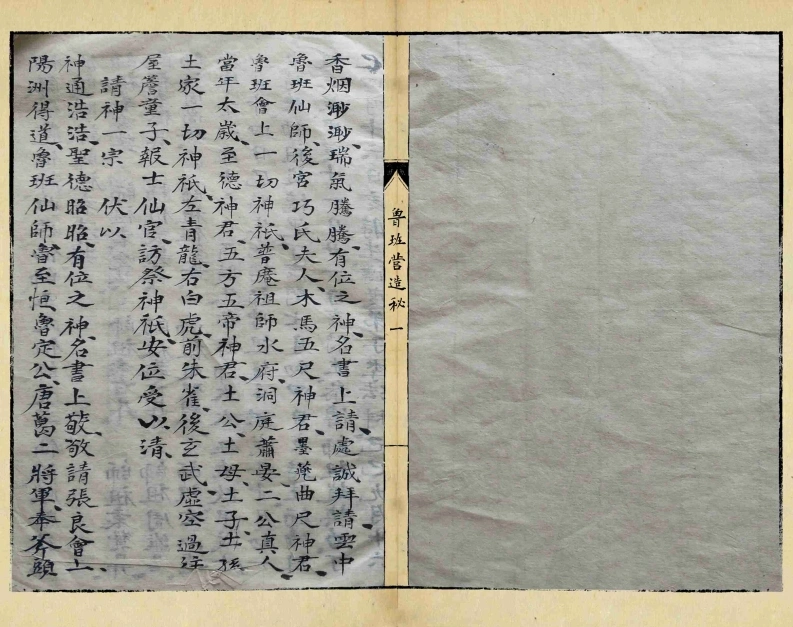 魯班營造秘 一
香烟渺渺瑞氣騰騰有位之神名書上請處誠拜請雲中
魯班仙師後宮巧氏夫人木馬五尺神君墨斗曲尺神君
魯班會上一切神祇普庵祖師水府洞庭蕭晏二公真人
當年太歲至德神君五方五帝神君土公土母土子土孫
土家一切神祇左青龍右白虎前朱雀後玄武虛空過往
屋簷童子報士仙官訪祭神祇安位受以清
請神一宗 伏以
神通浩浩聖德昭昭有位之神名書上敬敬請張良會上
陽洲得道魯班仙師魯至恒魯定公唐葛二將軍奉斧頭